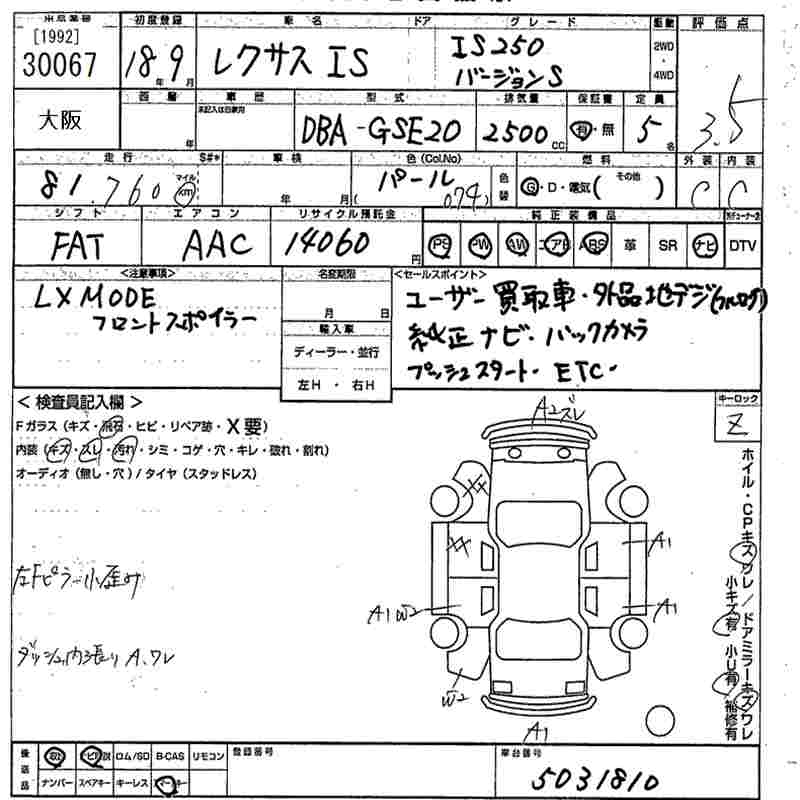 [1992]
初度登録 車名 ドア グレード 駆動 評価点
30067 18年9月 レクサス IS IS250 バージョンS 2WD・4WD 3.5
大阪 車歴 型式 排気量 保証書 定員
未記入は自家用
年 DBA-GSE20 2500cc 有・無 5名
走行 S#* 車検 色(Col,No) 燃料 外装 内装
81.760 マイル km 年 月 パール(074) 色替 G・D・電気( その他 ) C C
シフト エアコン リサイクル預託金 純正装備品
FAT AAC 14060円 PS PW AW エアB ABS 革 SR ナビ DTV
<注意事項> 名変期限 <セールスポイント>
LX MODE
フロントスポイラー
月 日
輸入車
ディーラー・並行
左H・右H
ユーザー買取車・外品地デジ(フルセグ)
純正ナビ・バックカメラ
プッシュスタート・ETC・
<検査員記入欄> キーロック
Z
Fガラス(キズ・飛石・ヒビ・リペア跡・X要)
内装(キズ・スレ・汚れ・シミ・コゲ・穴・キレ・破れ・割れ)
オーディオ(無し・穴)/タイヤ(スタッドレス)
左Fピラー小歪み
ダッシュ内張りA、ワレ
A2ズレ
XX
XX
A1
A1 W2
A1
W2
A1
ホイル・CPキズワレ/ドアミラーキズワレ
小キズ有 小U有 補修有
後送品 取説 ナビ取説 ロム/SD B-CAS リモコン 登録番号 車台番号
ナンバー スペアキー キーレス スマートキー 5031810